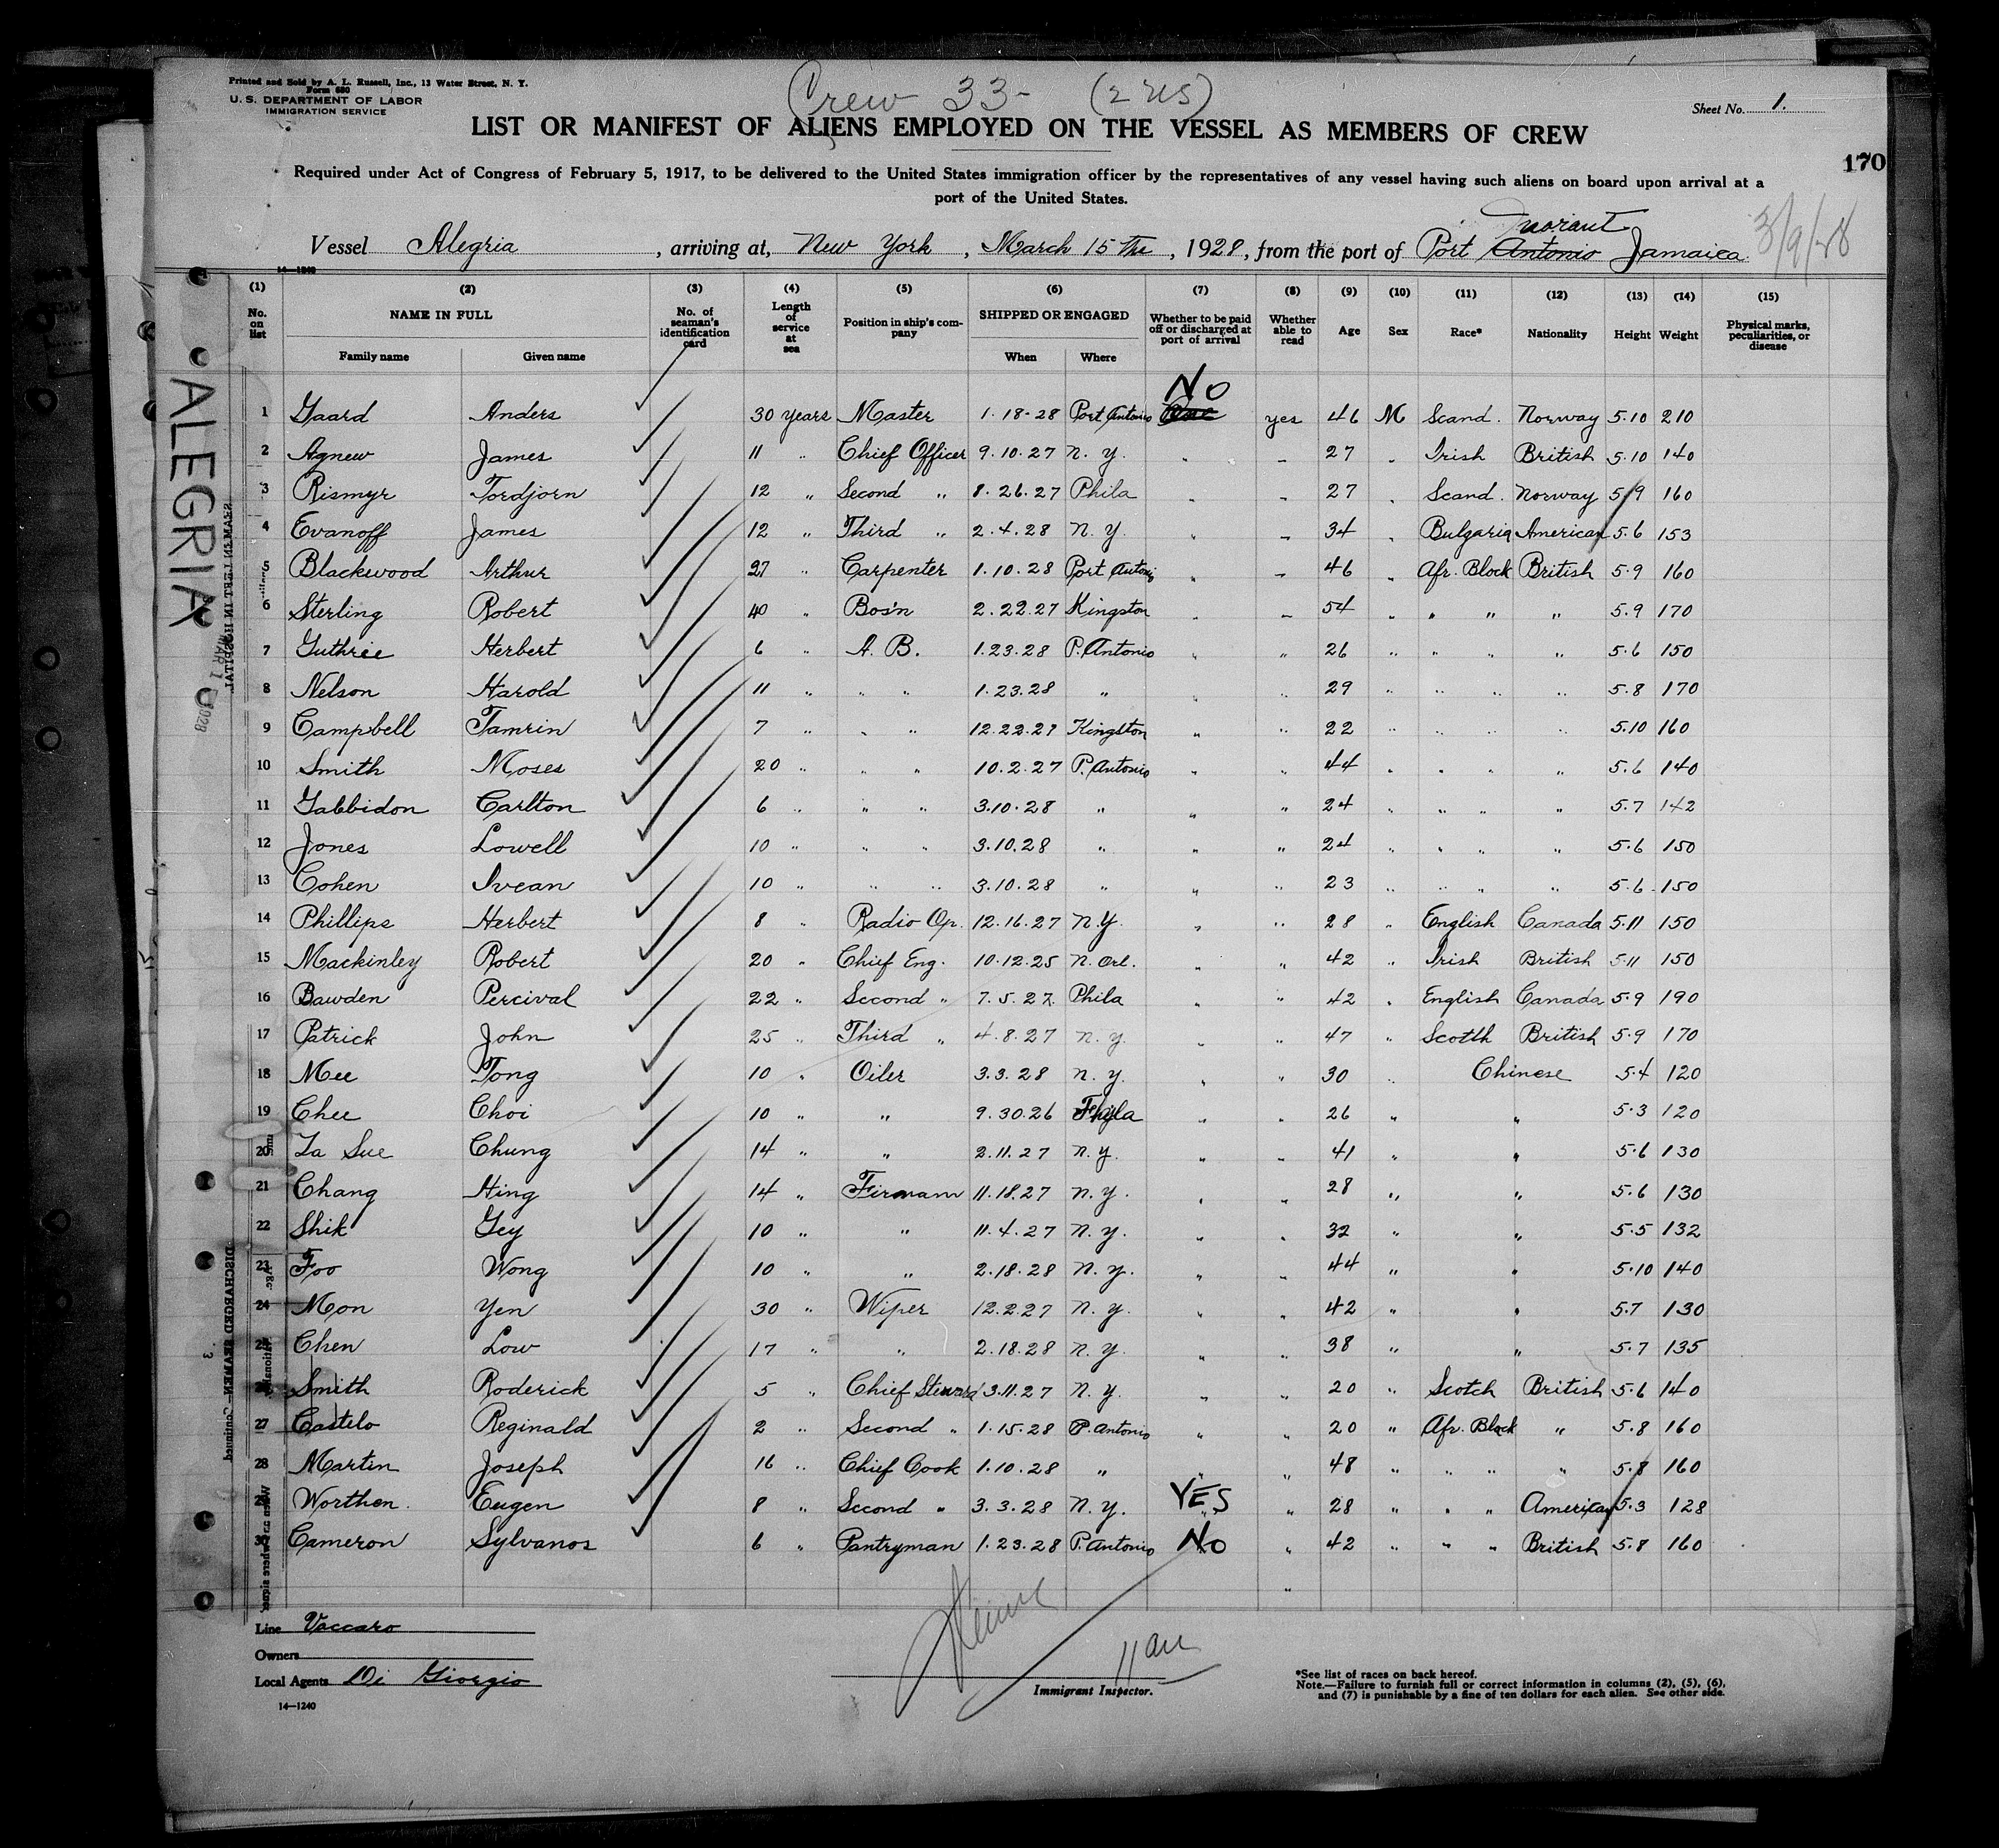 Printed and Sold by A. L. Russell, Inc., 13 Water Street, N. Y.
Form 680
U. S. DEPARTMENT OF LABOR
IMMIGRATION SERVICE
Crew 33- (2 US)
Sheet No. 1.
LIST OR MANIFEST OF ALIENS EMPLOYED ON THE VESSEL AS MEMBERS OF CREW
170
Required under Act of Congress of February 5, 1917, to be delivered to the United States immigration officer by the representatives of any vessel having such aliens on board upon arrival at a
port of the United States.
Morant
Vessel Alegria, arriving at, New York, March 15th, 1928, from the port of Port Antonio Jamaica
14—1240
(1) (2) (3) (4) (5) (6) (7) (8) (9) (10) (11) (12) (13) (14) (15)
No. on list NAME IN FULL Family name Given name No. of seaman's identification card Length of service at sea Position in ship's company SHIPPED OR ENGAGED When Where Whether to be paid off or discharged at port of arrival Whether able to read Age Sex Race* Nationality Height Weight Physical marks, peculiarities, or disease
ALEGRIA
No
1 Gaard Anders 30 years Master 1-18-28 Port Antonio yes 46 M Scand. Norway 5.10 210
2 Agnew James 11 " Chief Officer 9.10.27 N.Y. " " 27 " Irish British 5.10 140
3 Rismyr Tordjorn 12 " Second " 8.26.27 Phila " " 27 " Scand. Norway 5.9 160
4 Evanoff James 12 " Third " 2.4.28 N.Y. " " 34 " Bulgaria American 5.6 153
5 Blackwood Arthur 27 " Carpenter 1.10.28 Port Antonio " " 46 " Afr. Black British 5.9 160
6 Sterling Robert 40 " Bos'n 2.22.27 Kingston " " 54 " " " " 5.9 170
7 Guthrie Herbert 6 " A. B. 1.23.28 P. Antonio " " 26 " " " " 5.6 150
8 Nelson Harold 11 " " " 1.23.28 " " " 29 " " " " 5.8 170
9 Campbell Tamrin 7 " " " 12.22.27 Kingston " " 22 " " " " 5.10 160
10 Smith Moses 20 " " " 10.2.27 P. Antonio " " 44 " " " " 5.6 140
11 Gabbidon Carlton 6 " " " 3.10.28 " " " 24 " " " " 5.7 142
12 Jones Lowell 10 " " " 3.10.28 " " " 24 " " " " 5.6 150
13 Cohen Ivean 10 " " " 3.10.28 " " " 23 " " " " 5.6 150
14 Phillips Herbert 8 " Radio Op. 12.16.27 N.Y. " " 28 " English Canada 5.11 150
15 Mackinley Robert 20 " Chief Eng. 10.12.25 N. Orl. " " 42 " Irish British 5.11 150
16 Bawden Percival 22 " Second " 7.5.27 Phila " " 42 " English Canada 5.9 190
17 Patrick John 25 " Third " 4.8.27 N.Y. " " 47 " Scotth British 5.9 170
18 Mee Tong 10 " Oiler 3.3.28 N.Y. " " 30 " Chinese 5.4 120
19 Chee Choi 10 " " 9.30.26 " " 26 " " 5.3 120
20 La Sue Chung 14 " " 2.11.27 N.Y. " " 41 " " 5.6 130
21 Chang Hing 14 " Firmam 11.18.27 N.Y. " " 28 " " 5.6 130
22 Shik Gey 10 " " 11.4.27 N.Y. " " 32 " " 5.5 132
23 Foo Wong 10 " " 2.18.28 N.Y. " " 44 " " 5.10 140
24 Mon Yen 30 " Wiper 12.2.27 N.Y. " " 42 " " 5.7 130
25 Chen Low 17 " " 2.18.28 N.Y. " " 38 " " 5.7 135
26 Smith Roderick 5 " Chief Steward 3.11.27 N.Y. " " 20 " Scotch British 5.6 140
27 Castelo Reginald 2 " Second " 1.15.28 P. Antonio " " 20 " Afr. Black " 5.8 160
28 Martin Joseph 16 " Chief Cook 1.10.28 " " " 48 " " " " 5.8 160
29 Worthen Eugen 8 " Second " 3.3.28 N.Y. YES " 28 " " " American 5.3 128
30 Cameron Sylvanos 6 " Pantryman 1.23.28 P. Antonio No " 42 " " " British 5.8 160
Line Vaccaro
Owners
Local Agents Di Giorgio
Immigrant Inspector.
*See list of races on back hereof.
Note.—Failure to furnish full or correct information in columns (2), (5), (6),
and (7) is punishable by a fine of ten dollars for each alien. See other side.
14—1240